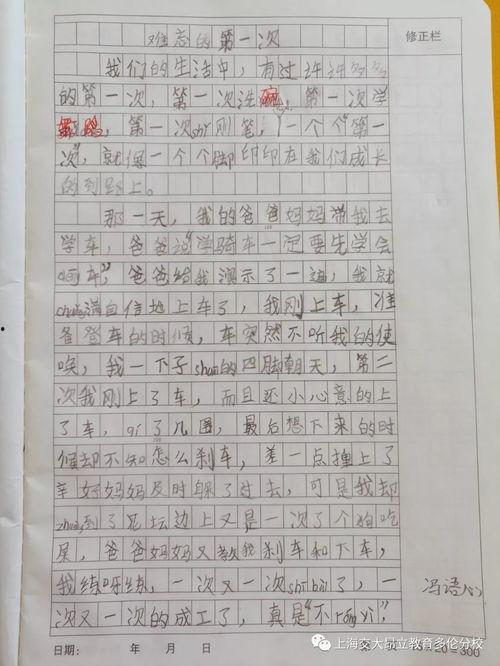 难忘的第一次
修正栏
我们的生活中,有过许许多多
的第一次,第一次洗碗,第一次学
,第一次shǐ刚笔,一个个“第一
次”,就像一个个脚印印在我们成长
的到路上。
那一天,我的爸爸妈妈带我去
学车,爸爸说“学骑车一定要先学会
车”,爸爸给我演示了一遍,我就
满自信地上车了,我刚上车,准
备登车的时候,车突然不听我的使
唤,我一下子shuāi的四脚朝天,第二
次我刚上了车,而且还小心意的上
了车,qí了几圈,最后想下来的时
候却不知怎么刹车,差一点撞上了
幸好妈妈及时躲了过去,可是我却
到了花坛边上又是一次了个狗吃
屎,爸爸妈妈又教我刹车和下车,
我练呀练,一次又一次shī bài了,一
次又一次的成工了,真是“不róng yì”,
冯语
日期: 年 月 日
20=300
上海交大昂立教育多伦分校